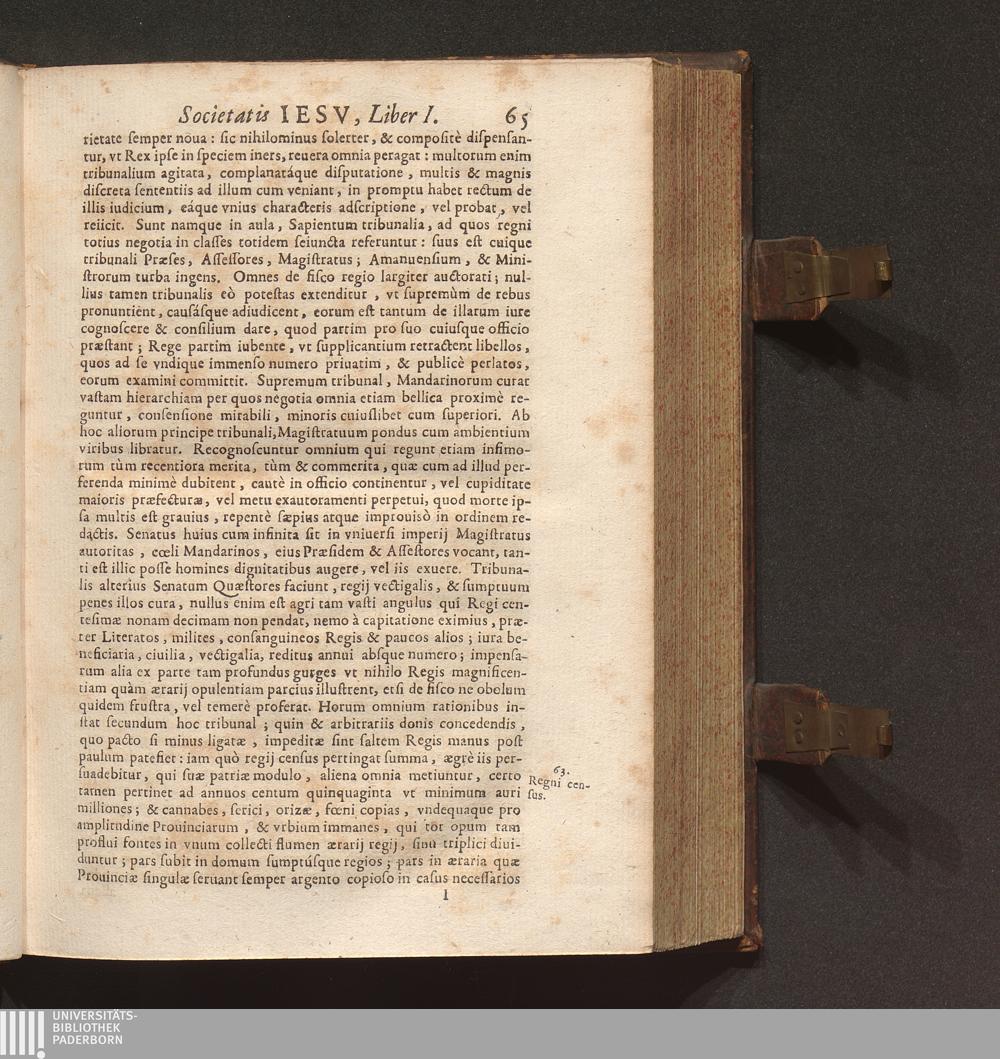 Societatis IESV, Liber I. 65
rietate semper noua: sic nihilominus solerter, & compositè dispensan-
tur, vt Rex ipse in speciem iners, reuera omnia peragat: multorum enim
tribunalium agitata, complanatáque disputatione, multis & magnis
discreta sententiis ad illum cum veniant, in promptu habet rectum de
illis iudicium, eáque vnius characteris adscriptione, vel probat, vel
reiicit. Sunt namque in aula, Sapientum tribunalia, ad quos regni
totius negotia in classes totidem seiuncta referuntur: suus est cuique
tribunali Præses, Assessores, Magistratus; Amanuensium, & Mini-
strorum turba ingens. Omnes de fisco regio largiter auctorati; nul-
lius tamen tribunalis eò potestas extenditur, vt supremùm de rebus
pronuntient, causásque adiudicent, eorum est tantum de illarum iure
cognoscere & consilium dare, quod partim pro suo cuiusque officio
præstant; Rege partim iubente, vt supplicantium retractent libellos,
quos ad se vndique immenso numero priuatim, & publicè perlatos,
eorum examini committit. Supremum tribunal, Mandarinorum curat
vastam hierarchiam per quos negotia omnia etiam bellica proximè re-
guntur, consensione mirabili, minoris cuiuslibet cum superiori. Ab
hoc aliorum principe tribunali, Magistratuum pondus cum ambientium
viribus libratur. Recognoscuntur omnium qui regunt etiam infimo-
rum tùm recentiora merita, tùm & commerita, quæ cum ad illud per-
ferenda minimè dubitent, cautè in officio continentur, vel cupiditate
maioris præfecturæ, vel metu exautoramenti perpetui, quod morte ip-
sa multis est grauius, repentè sæpius atque improuisò in ordinem re-
dactis. Senatus huius cum infinita sit in vniuersi imperij Magistratus
autoritas, cœli Mandarinos, eius Præsidem & Assestores vocant, tan-
ti est illic posse homines dignitatibus augere, vel iis exuere. Tribuna-
lis alterius Senatum Quæstores faciunt, regij vectigalis, & sumptuum
penes illos cura, nullus enim est agri tam vasti angulus qui Regi cen-
tesimæ nonam decimam non pendat, nemo à capitatione eximius, præ-
ter Literatos, milites, consanguineos Regis & paucos alios; iura be-
neficiaria, ciuilia, vectigalia, reditus annui absque numero; impensa-
rum alia ex parte tam profundus gurges vt nihilo Regis magnificen-
tiam quàm ærarij opulentiam parcius illustrent, etsi de fisco ne obolum
quidem frustra, vel temerè proferat. Horum omnium rationibus in-
stat secundum hoc tribunal; quin & arbitrariis donis concedendis,
quo pacto si minus ligatæ, impeditæ sint saltem Regis manus post
paulum patefiet: iam quò regij census pertingat summa, ægrè iis per-
suadebitur, qui suæ patriæ modulo, aliena omnia metiuntur, certo
tamen pertinet ad annuos centum quinquaginta vt minimum auri
milliones; & cannabes, serici, orizæ, fœni copias, vndequaque pro
amplitudine Prouinciarum, & vrbium immanes, qui tot opum tam
proflui fontes in vnum collecti flumen ærarij regij, sinu triplici diui-
duntur; pars subit in domum sumptúsque regios; pars in æraria quæ
Prouinciæ singulæ seruant semper argento copioso in casus necessàrios
63.
Regni cen-
sus.
I
UNIVERSITÄTS-
BIBLIOTHEK
PADERBORN